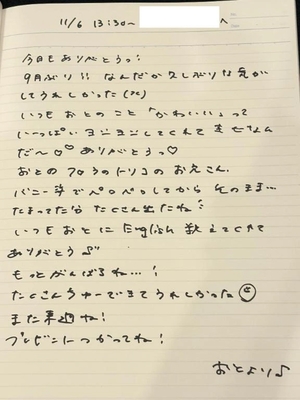 11/6 13:30~ へ
今日もありがとうっ!
9月ぶり!! なんだか久しぶりな気が
してうれしかった(笑)
いつもおとのこと「かわいい」って
いーっぱいヨシヨシしてくれて幸せなん
だ〜♡♡ ありがとうっ♡
おとのフロうのトリコのおえこん。
バニー姿でペロペロしてから そのまま…
たまってた分 たくさん出たね!
いつもおとに English 教えてくれて
ありがとう♪
もっとがんばるね…!
たくさんチャーできてうれしかった
また来週ね!
プレゼントつかってね!
おとより♪